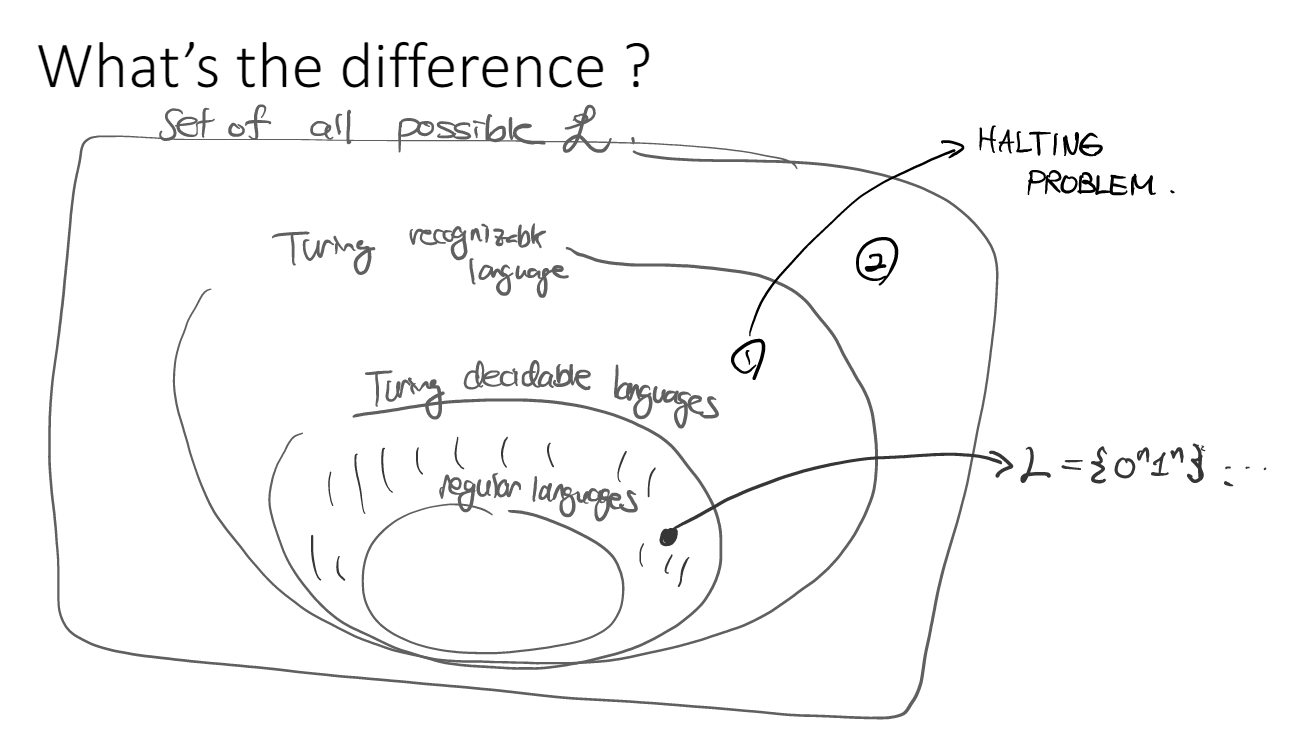 What's the difference ?
Set of all possible ℒ.
HALTING
PROBLEM.
Turing recognizable
language
2
1
Turing decidable languages
L = {0ⁿ1ⁿ} : ...
regular languages